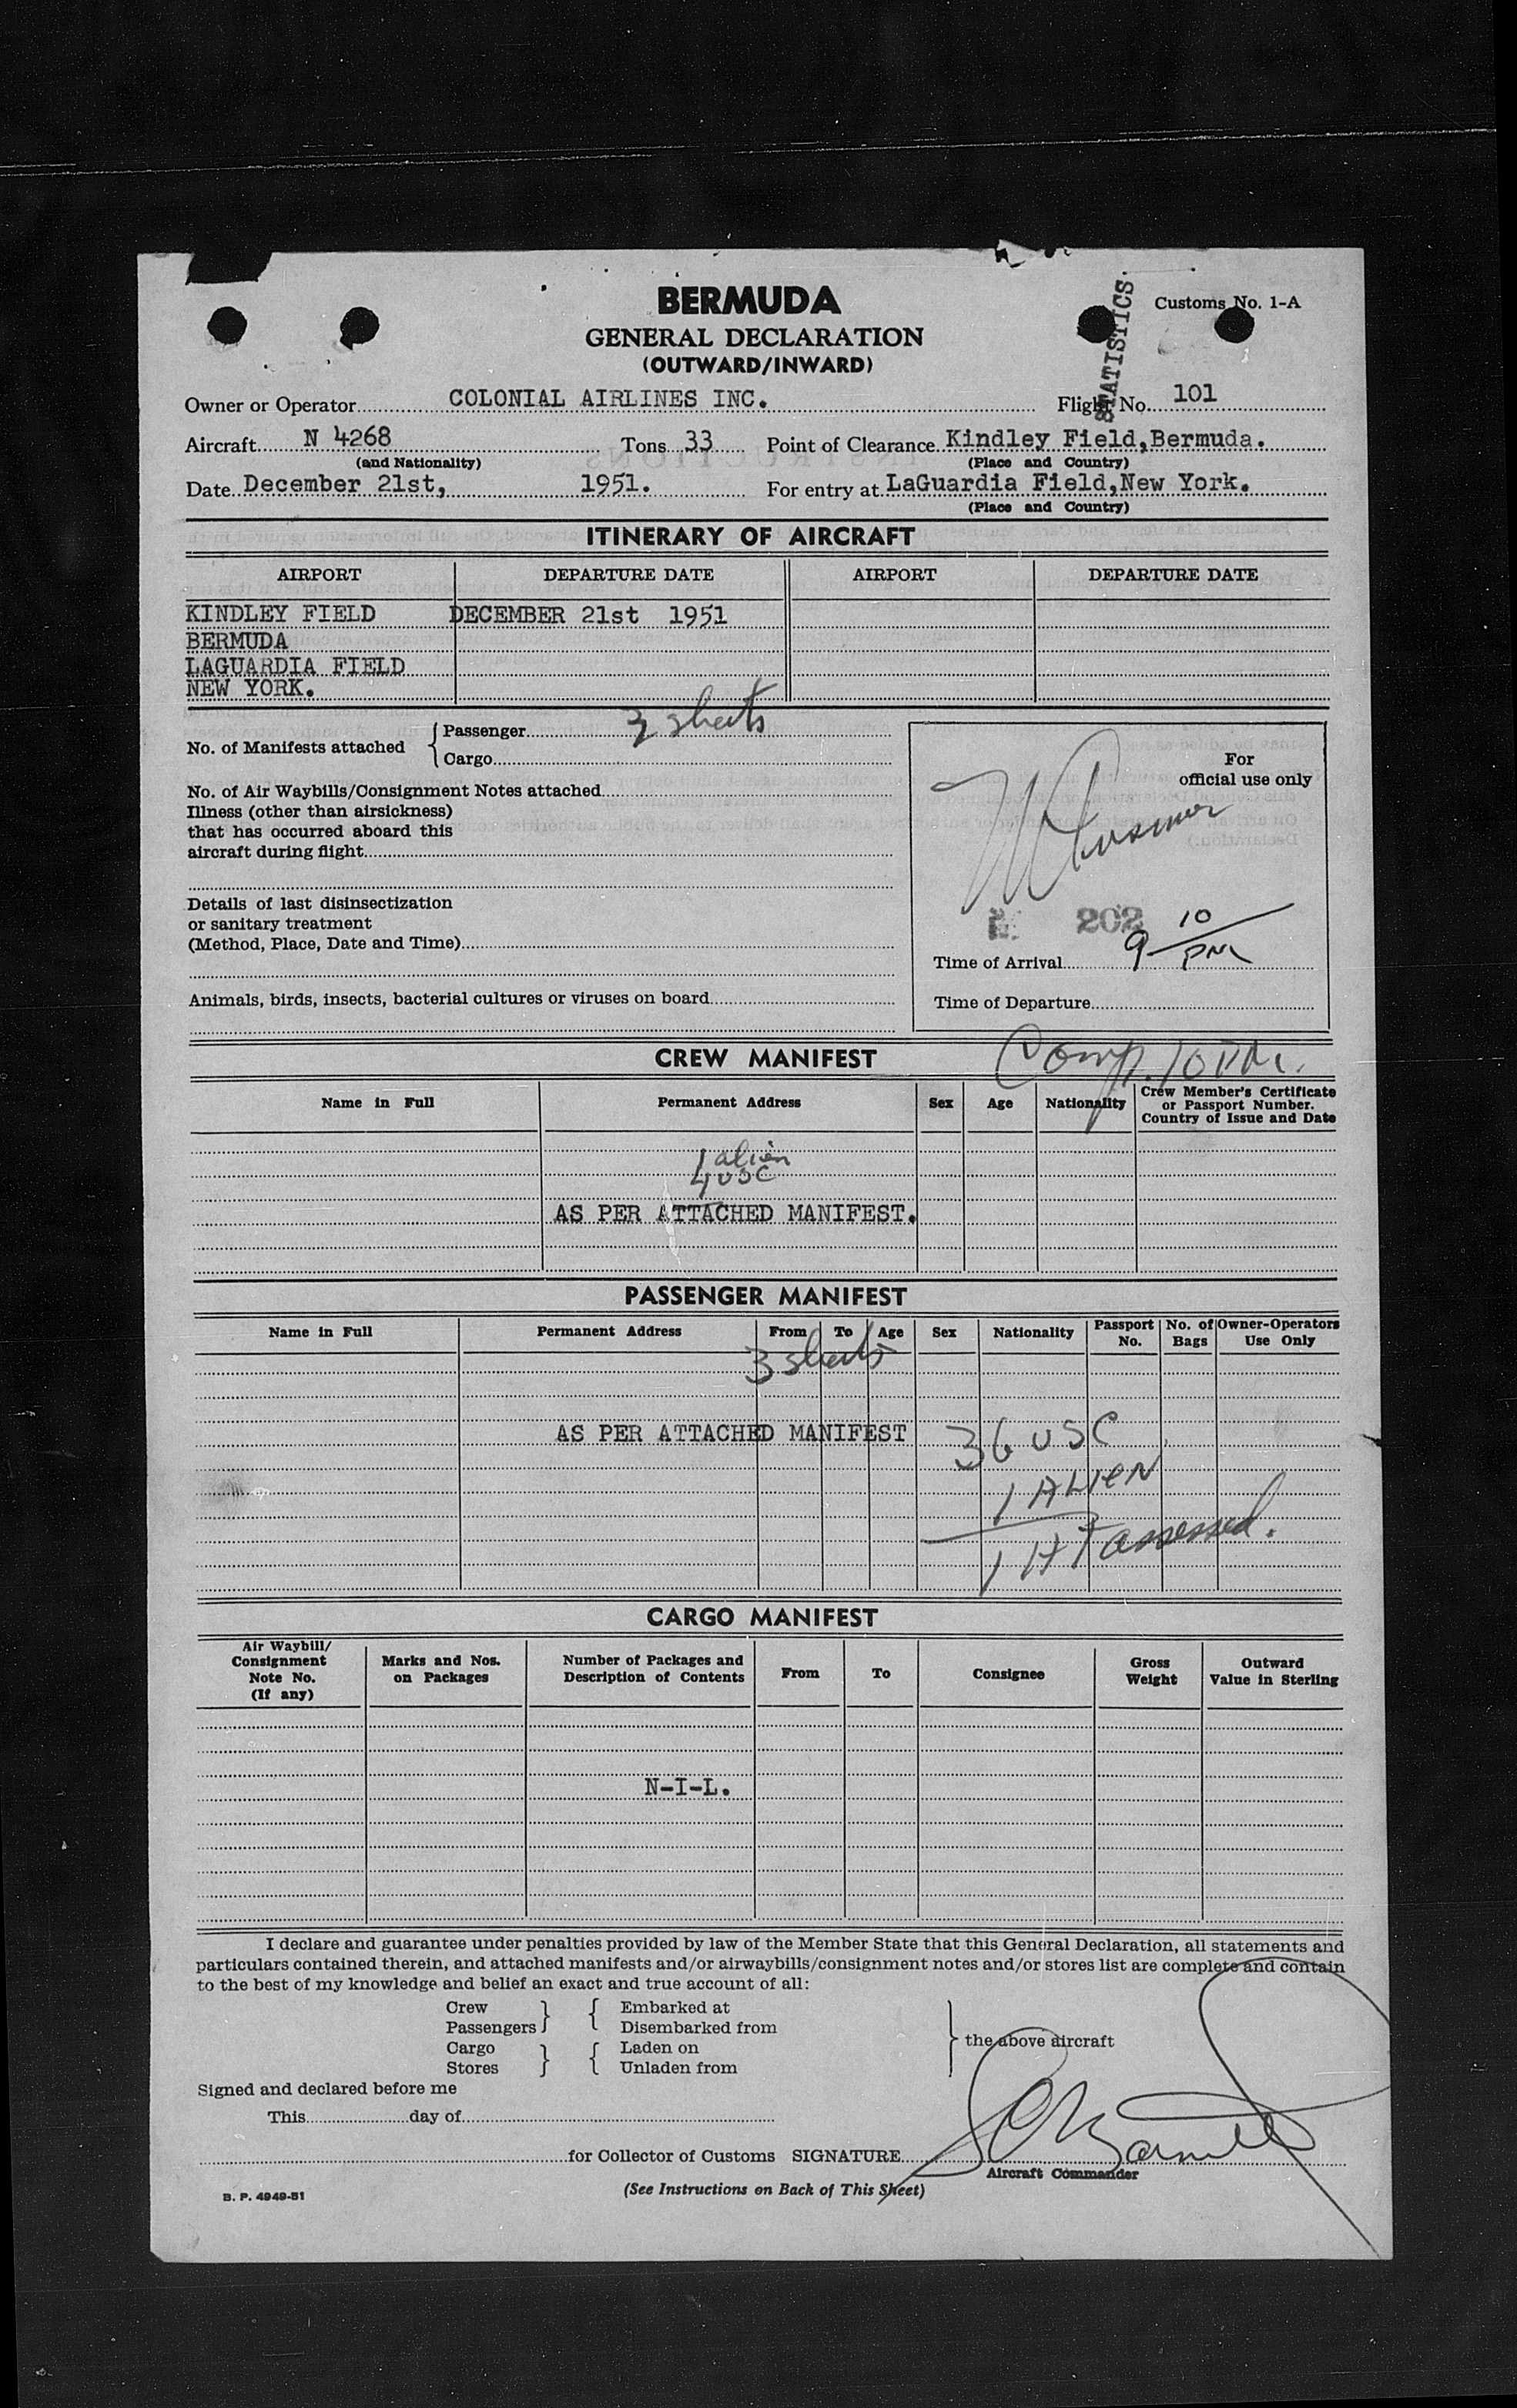 BERMUDA
Customs No. 1-A
GENERAL DECLARATION
(OUTWARD/INWARD)
STATISTICS.
Owner or Operator COLONIAL AIRLINES INC. Flight No. 101
Aircraft N 4268 Tons 33 Point of Clearance Kindley Field, Bermuda.
(and Nationality) (Place and Country)
Date December 21st, 1951. For entry at LaGuardia Field, New York.
(Place and Country)
ITINERARY OF AIRCRAFT
AIRPORT DEPARTURE DATE AIRPORT DEPARTURE DATE
KINDLEY FIELD DECEMBER 21st 1951
BERMUDA
LAGUARDIA FIELD
NEW YORK.
No. of Manifests attached { Passenger 3 sheets
Cargo
No. of Air Waybills/Consignment Notes attached
Illness (other than airsickness)
that has occurred aboard this
aircraft during flight
Details of last disinsectization
or sanitary treatment
(Method, Place, Date and Time)
Animals, birds, insects, bacterial cultures or viruses on board
For
official use only
202
Time of Arrival 9 10 PM
Time of Departure
Comp. 10 PM.
CREW MANIFEST
Name in Full Permanent Address Sex Age Nationality Crew Member's Certificate
or Passport Number.
Country of Issue and Date
1 alien
4 USC
AS PER ATTACHED MANIFEST.
PASSENGER MANIFEST
Name in Full Permanent Address From To Age Sex Nationality Passport No. No. of Bags Owner-Operators Use Only
3 sheets
AS PER ATTACHED MANIFEST 36 USC
1 ALIEN
1 HT assessed.
CARGO MANIFEST
Air Waybill/
Consignment
Note No.
(If any)
Marks and Nos.
on Packages
Number of Packages and
Description of Contents
From
To
Consignee
Gross
Weight
Outward
Value in Sterling
N-I-L.
I declare and guarantee under penalties provided by law of the Member State that this General Declaration, all statements and
particulars contained therein, and attached manifests and/or airwaybills/consignment notes and/or stores list are complete and contain
to the best of my knowledge and belief an exact and true account of all:
Crew } { Embarked at
Passengers } { Disembarked from } the above aircraft
Cargo } { Laden on
Stores } { Unladen from
Signed and declared before me
This day of
for Collector of Customs SIGNATURE
Aircraft Commander
(See Instructions on Back of This Sheet)
B. P. 4949-51